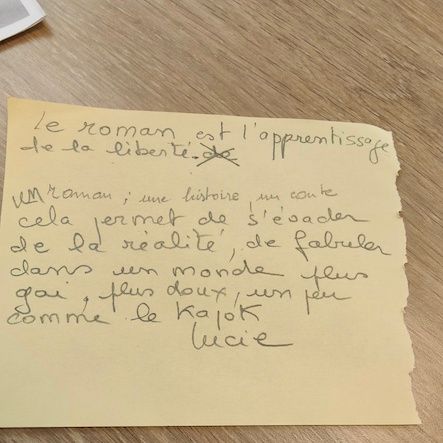 le roman est l'apprentissage
de la liberté. de
un roman ; une histoire, un conte
cela permet de s'évader
de la réalité, de fabuler
dans un monde plus
gai, plus doux, un peu
comme le Kapok
Lucie